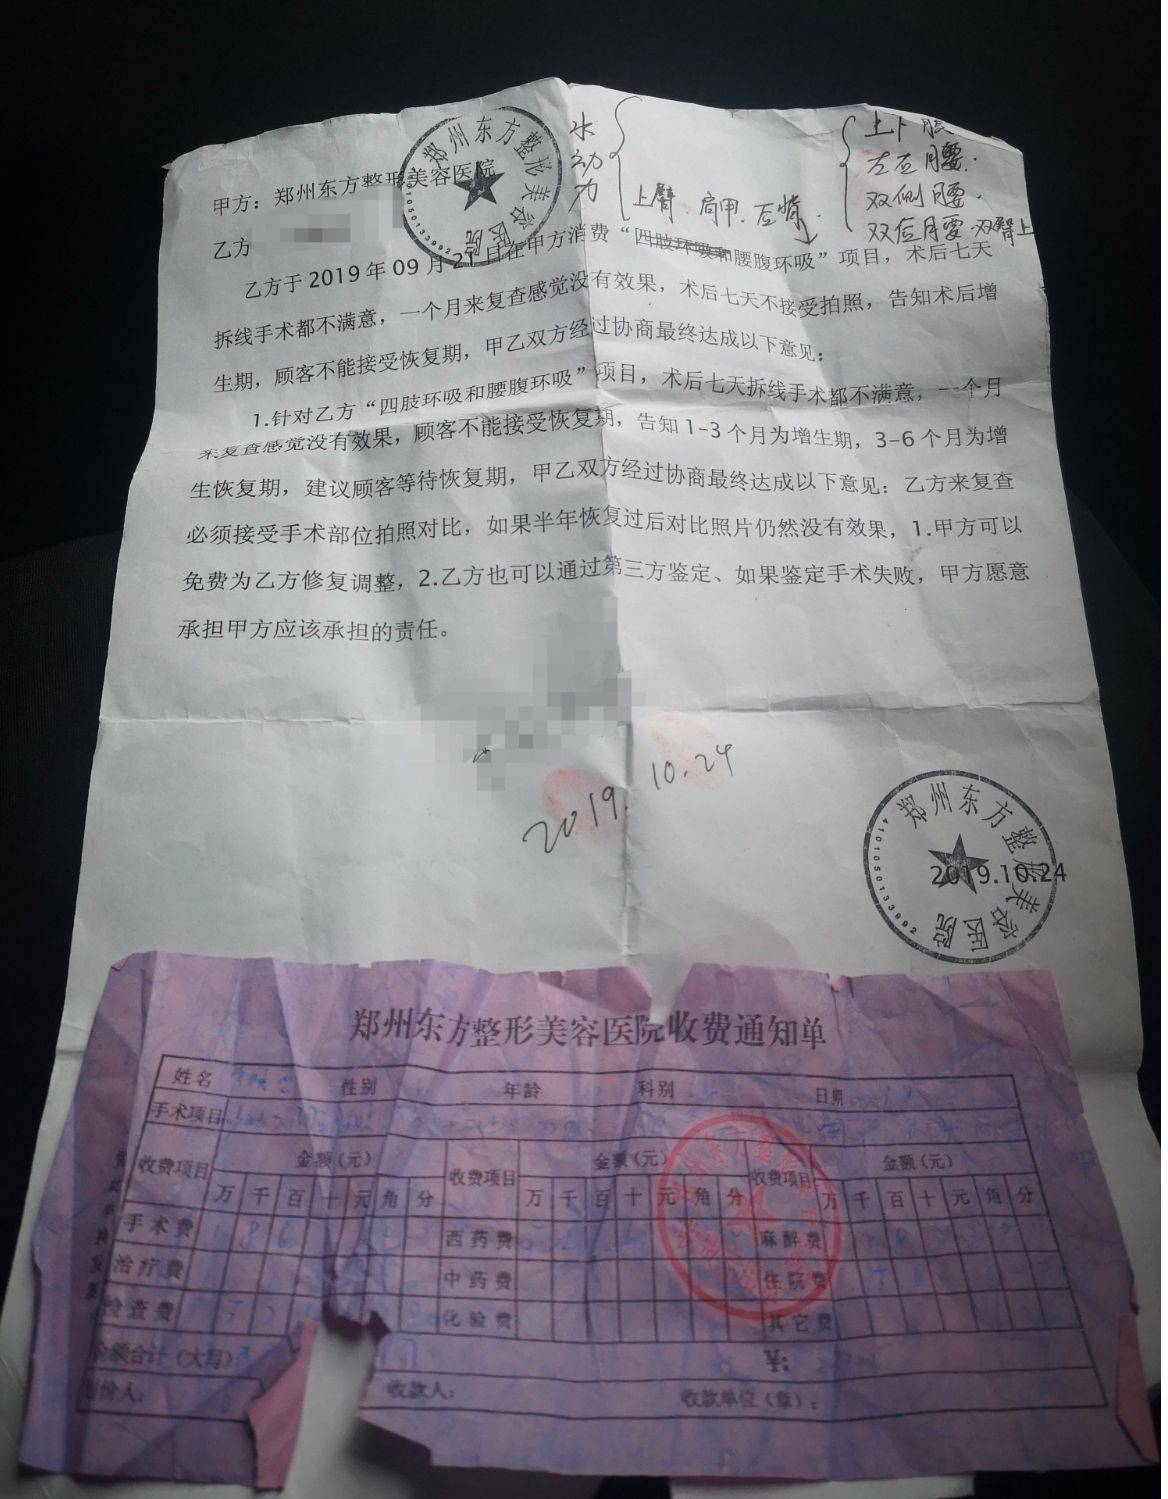 郑州东方整形美容医院
4101050133992
水动力
上臂.肩甲.后背.
左右腰.
双侧腰.
双后腰.双臀上
甲方：郑州东方整形美容医院
乙方
乙方于2019年09月21日在甲方消费“四肢环吸和腰腹环吸”项目，术后七天
拆线手术都不满意，一个月来复查感觉没有效果，术后七天不接受拍照，告知术后增
生期，顾客不能接受恢复期，甲乙双方经过协商最终达成以下意见：
1.针对乙方“四肢环吸和腰腹环吸”项目，术后七天拆线手术都不满意，一个月
来复查感觉没有效果，顾客不能接受恢复期，告知1-3个月为增生期，3-6个月为增
生恢复期，建议顾客等待恢复期，甲乙双方经过协商最终达成以下意见：乙方来复查
必须接受手术部位拍照对比，如果半年恢复过后对比照片仍然没有效果，1.甲方可以
免费为乙方修复调整，2.乙方也可以通过第三方鉴定、如果鉴定手术失败，甲方愿意
承担甲方应该承担的责任。
2019.10.24
郑州东方整形美容医院
2019.10.24
4101050133992
郑州东方整形美容医院收费通知单
姓名 性别 年龄 科别 日期
手术项目
收费项目 金额（元） 收费项目 金额（元） 收费项目 金额（元）
万 千 百 十 元 角 分 万 千 百 十 元 角 分 万 千 百 十 元 角 分
手术费 西药费 麻醉费
治疗费 中药费 住院费
检查费 化验费 其它费
金额合计（大写）
划价人： 收款人： 收款单位（章）：